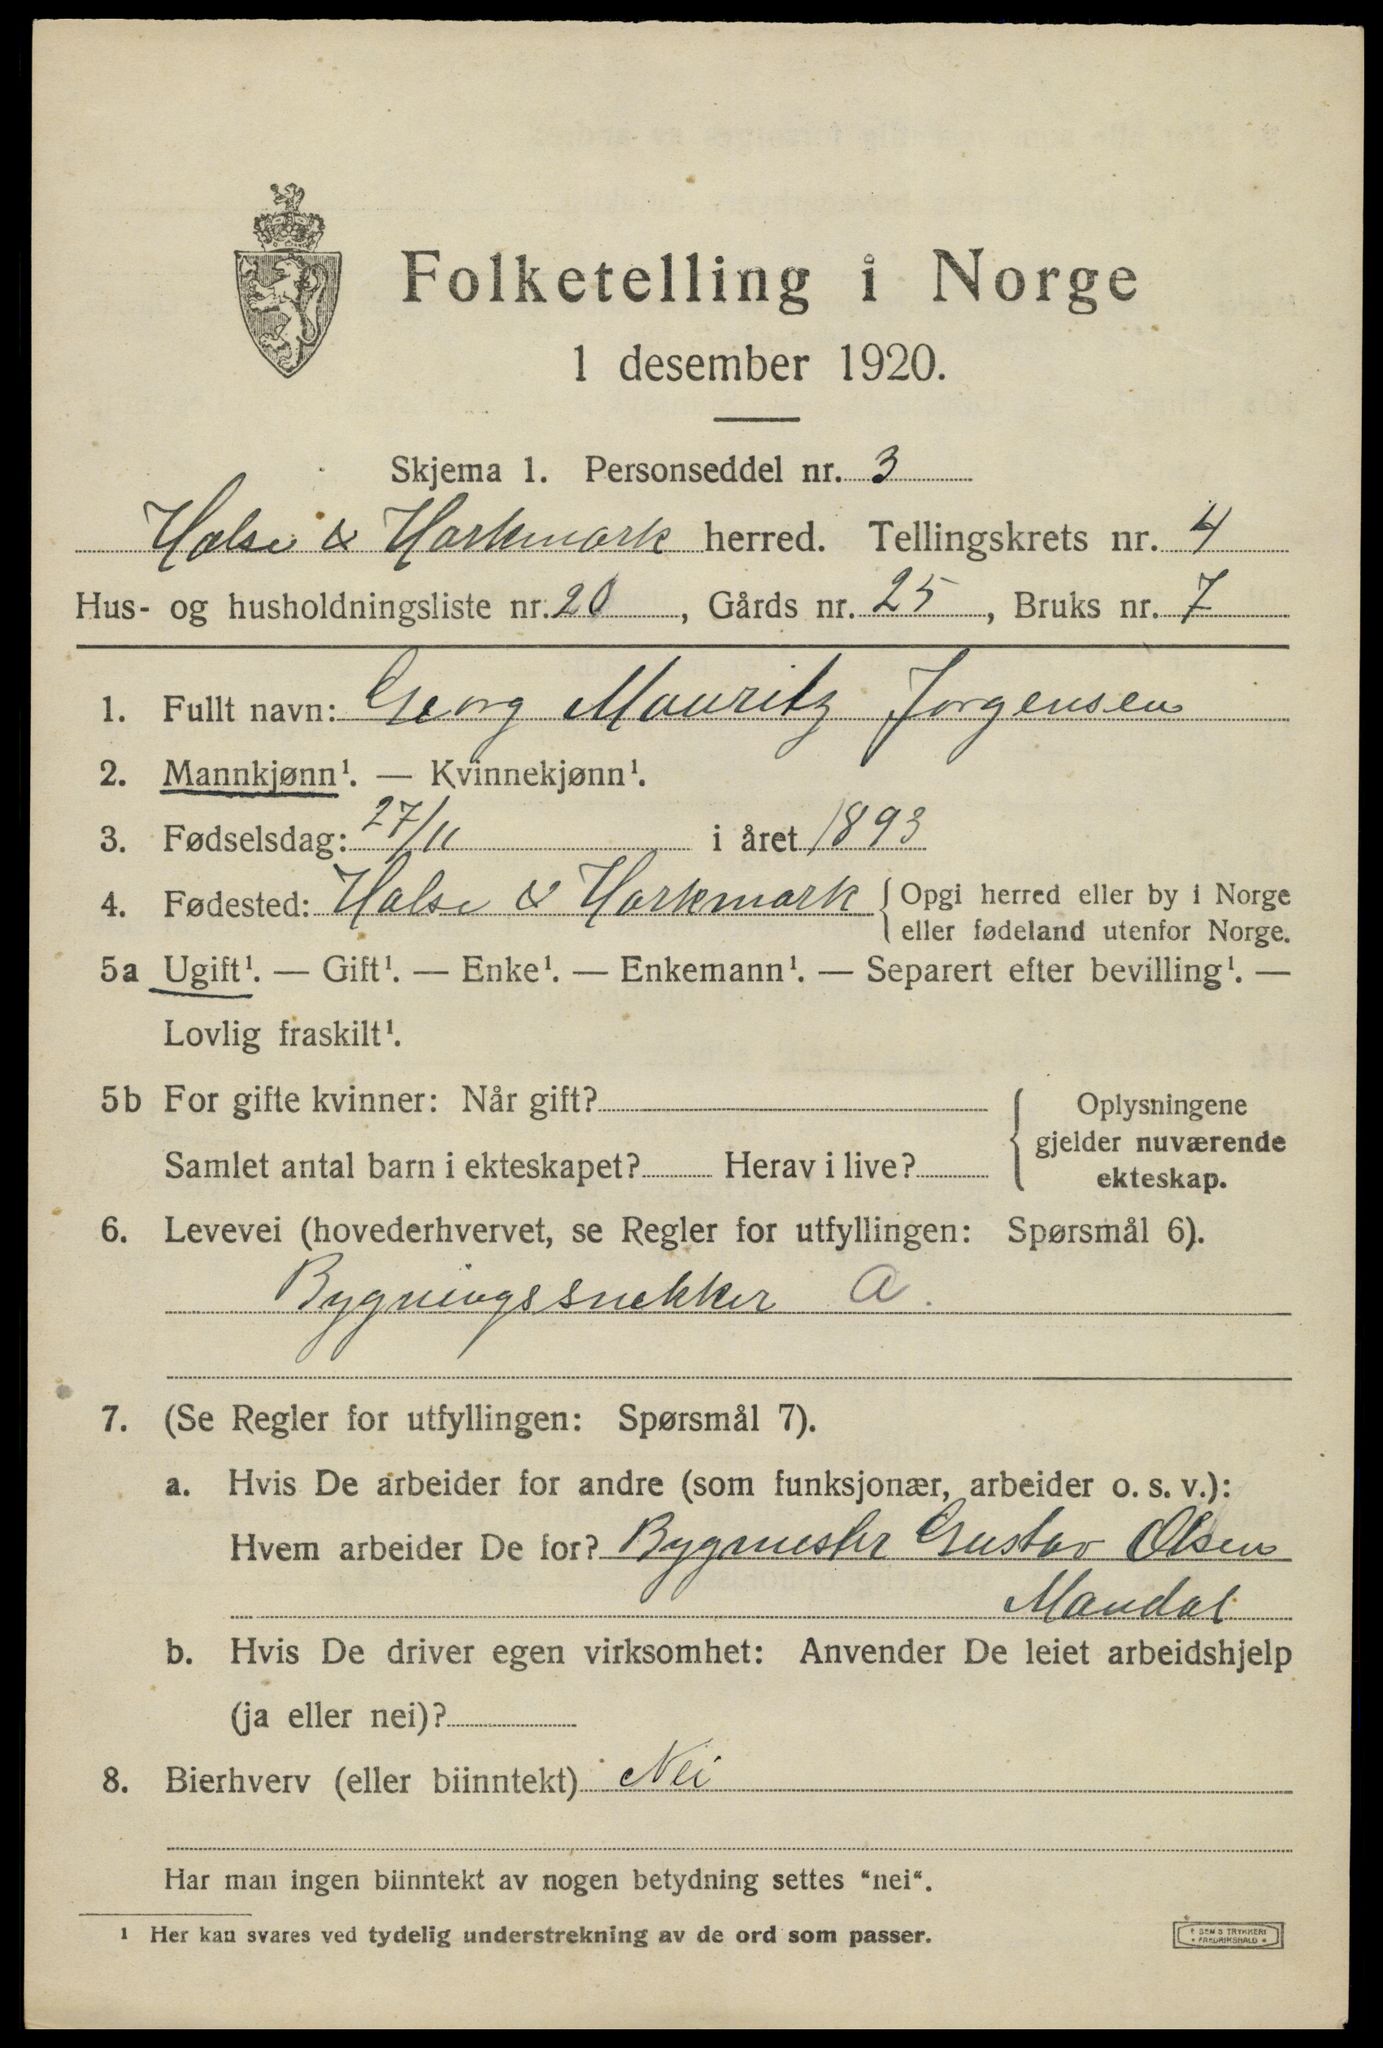 Folketelling i Norge
1 desember 1920.
Skjema 1. Personseddel nr. 3
Halse & Harkmark herred. Tellingskrets nr. 4
Hus- og husholdningsliste nr. 20, Gårds nr. 25, Bruks nr. 7
1. Fullt navn: Georg Mauritz Jørgensen
2. Mannkjønn¹. — Kvinnekjønn¹.
3. Fødselsdag: 27/11 i året 1893
4. Fødested: Halse & Harkmark { Opgi herred eller by i Norge
eller fødeland utenfor Norge.
5a Ugift¹. — Gift¹. — Enke¹. — Enkemann¹. — Separert efter bevilling¹. —
Lovlig fraskilt¹.
5b For gifte kvinner: Når gift?
Samlet antal barn i ekteskapet? Herav i live?
{ Oplysningene
gjelder nuværende
ekteskap.
6. Levevei (hovederhvervet, se Regler for utfyllingen: Spørsmål 6).
Bygningssnekker a.
7. (Se Regler for utfyllingen: Spørsmål 7).
a. Hvis De arbeider for andre (som funksjonær, arbeider o. s. v.):
Hvem arbeider De for? Bygmester Gustav Olsen
Mandal
b. Hvis De driver egen virksomhet: Anvender De leiet arbeidshjelp
(ja eller nei)?
8. Bierhverv (eller biinntekt) Nei
Har man ingen biinntekt av nogen betydning settes "nei".
1 Her kan svares ved tydelig understrekning av de ord som passer.
SEM'S TRYKKERI
FREDRIKSHALD